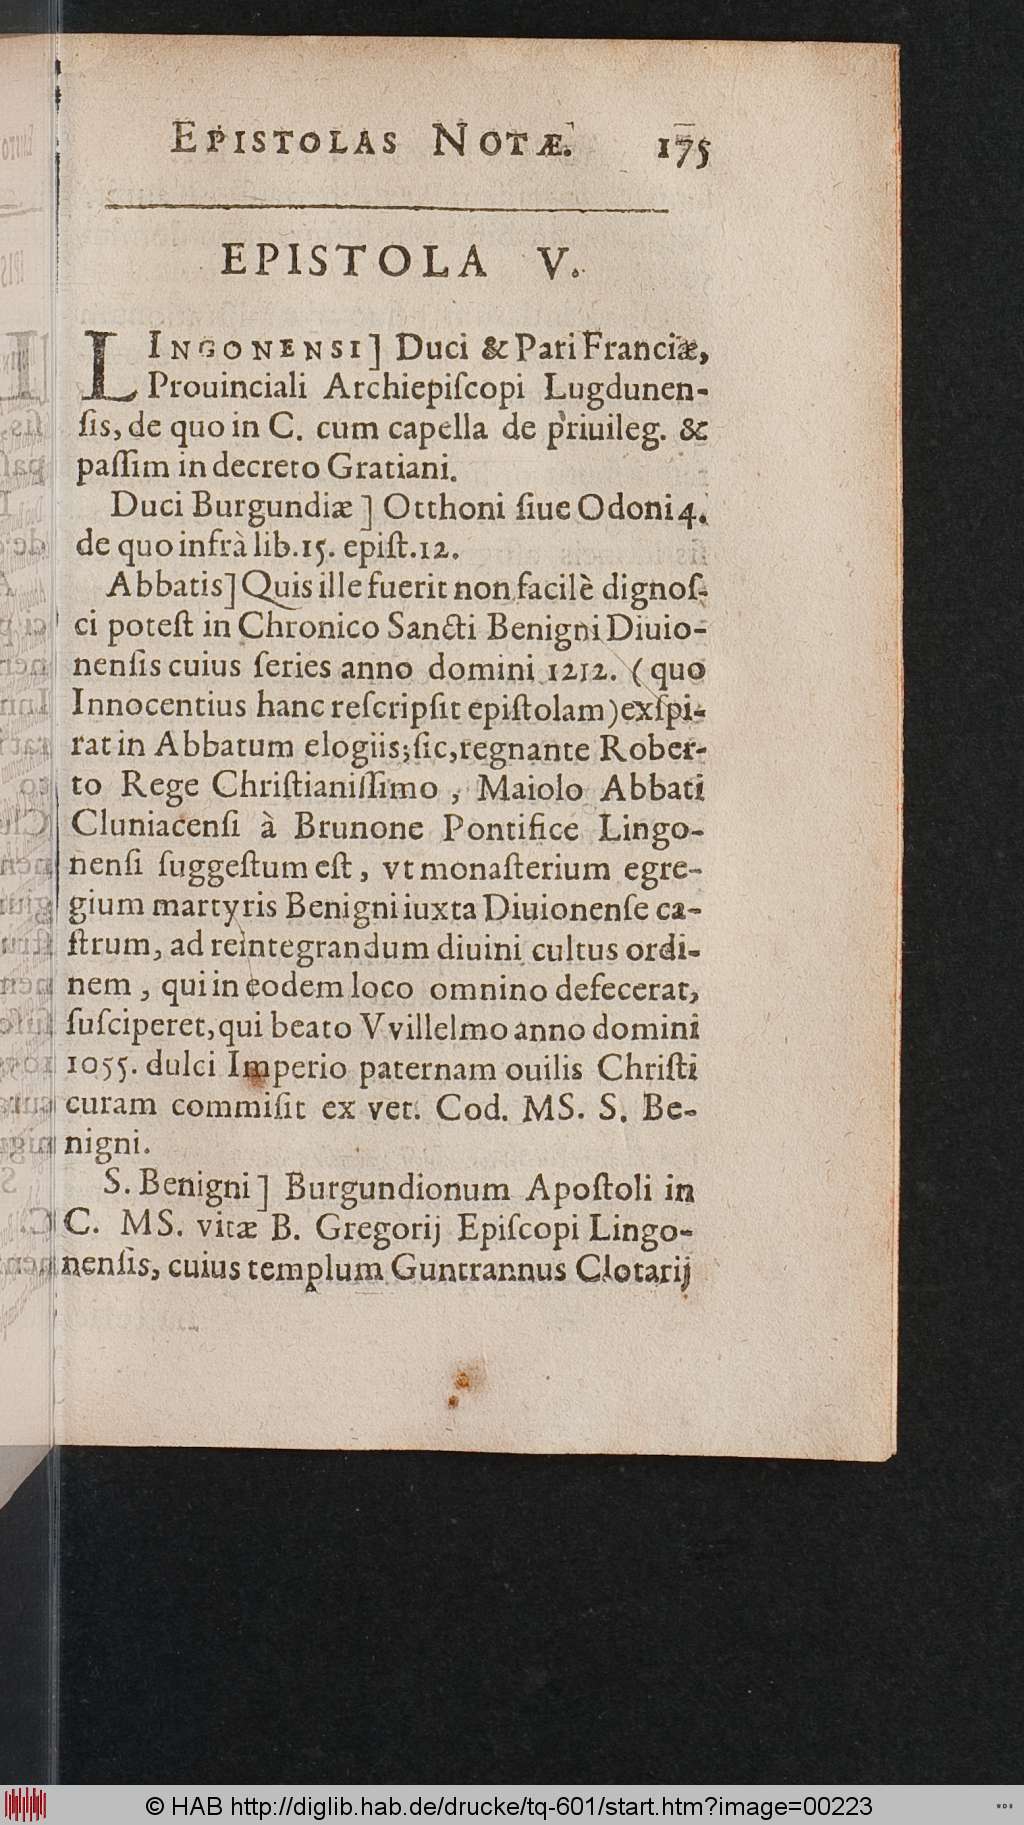 EPISTOLAS NOTÆ. 175
EPISTOLA V.
LINGONENSI] Duci & Pari Franciæ,
Prouinciali Archiepiſcopi Lugdunen-
ſis, de quo in C. cum capella de priuileg. &
paſſim in decreto Gratiani.
Duci Burgundiæ] Otthoni ſiue Odoni 4.
de quo infrà lib. 15. epiſt. 12.
Abbatis] Quis ille fuerit non facilè dignoſ-
ci poteſt in Chronico Sancti Benigni Diuio-
nenſis cuius ſeries anno domini 1212. (quo
Innocentius hanc reſcripſit epiſtolam) exſpi-
rat in Abbatum elogiis; ſic, regnante Rober-
to Rege Chriſtianiſſimo, Maiolo Abbati
Cluniacenſi à Brunone Pontifice Lingo-
nenſi ſuggeſtum eſt, vt monaſterium egre-
gium martyris Benigni iuxta Diuionenſe ca-
ſtrum, ad reintegrandum diuini cultus ordi-
nem, qui in eodem loco omnino defecerat,
ſuſciperet, qui beato VVillelmo anno domini
1055. dulci Imperio paternam ouilis Chriſti
curam commiſit ex vet. Cod. MS. S. Be-
nigni.
S. Benigni] Burgundionum Apoſtoli in
C. MS. vitæ B. Gregorij Epiſcopi Lingo-
nenſis, cuius templum Guntrannus Clotarij
© HAB http://diglib.hab.de/drucke/tq-601/start.htm?image=00223